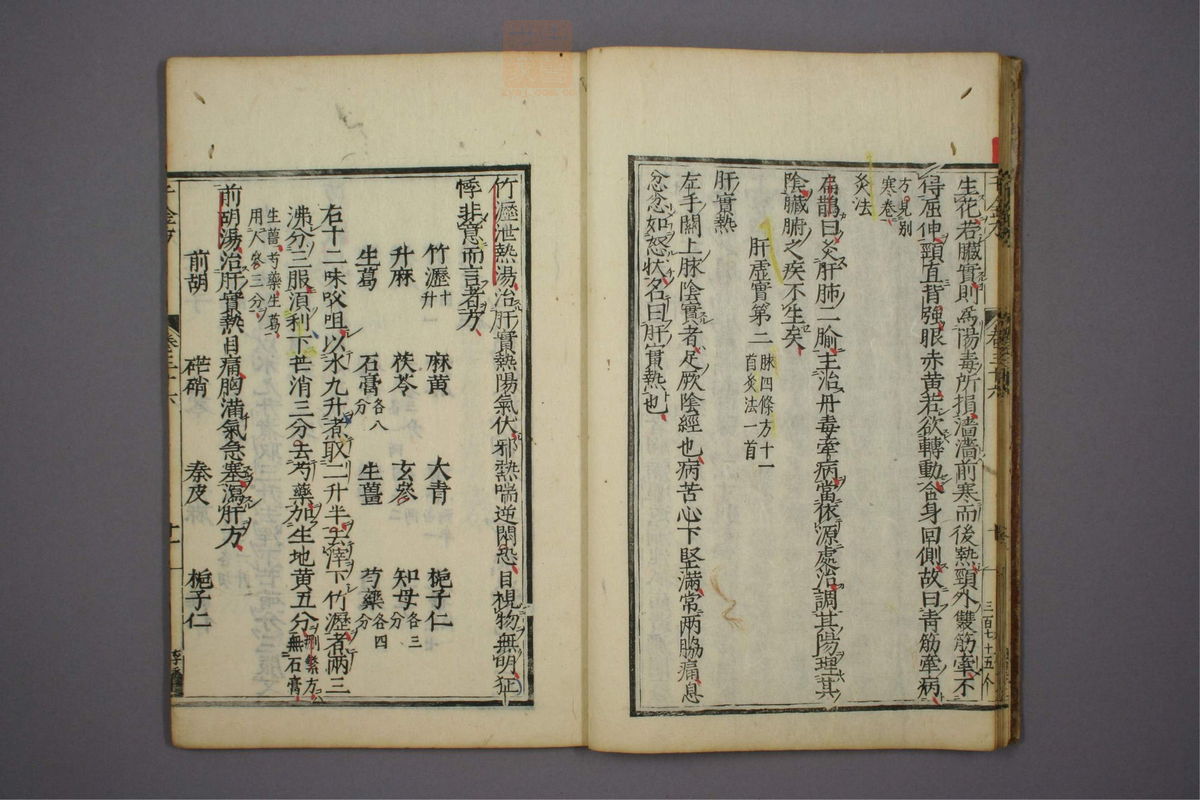 生花若臟實則爲陽毒所損濇濇前寒而後熱頸外雙筋牽不
得屈伸頸直背強眼赤黃若欲轉動合身回側故曰青筋牽病
方見別
寒卷
灸法
扁鵲曰灸肝肺二腧主治丹毒牽病當依源處治調其陽理其
陰臟腑之疾不生矣
肝虛實第二
脉四條方十一
首灸法一首
肝實熱
左手關上脉陰實者足厥陰經也病苦心下堅滿常兩脇痛息
忿忿如怒狀名曰肝實熱也
竹瀝泄熱湯治肝實熱陽氣伏邪熱喘逆悶恐目視物無明狂
悸非意而言者方
竹瀝一升 麻黃 大青 梔子仁
升麻 茯苓 玄參 知母各三分
生葛 石膏各八分 生薑 芍藥各四分
右十二味㕮咀以水九升煮取二升半去滓下竹瀝者兩三
沸分三服須利下芒消三分去芍藥加生地黃五分刪繁方無石膏
生薑芍藥生葛
用人參三分
前胡湯治肝實熱目痛胸滿氣急塞瀉肝方
前胡 芒硝 秦皮 梔子仁